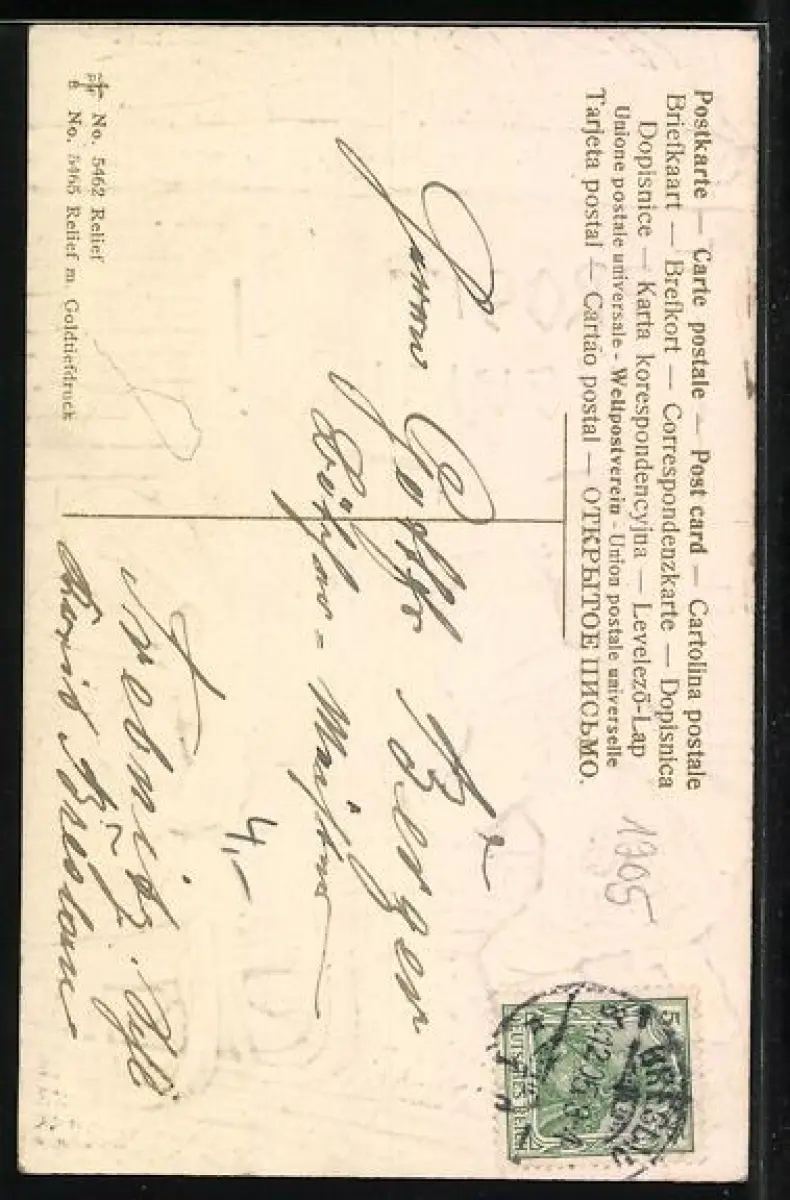 Postkarte — Carte postale — Post card — Cartolina postale
Briefkaart — Brefkort — Correspondenzkarte — Dopisnica
Dopisnice — Karta korespondencyjna — Levelező-Lap
Unione postale universale - Weltpostverein - Union postale universelle
Tarjeta postal — Cartão postal — ОТКРЫТОЕ ПИСЬМО.
1905
5
DEUTSCHES REICH
BRESLAU
12.05
Herrn Gottlob Berger
Böttcher-Meister
4,-
Trebnitz
Breslau
No. 5462 Relief
No. 5465 Relief m. Goldtiefdruck